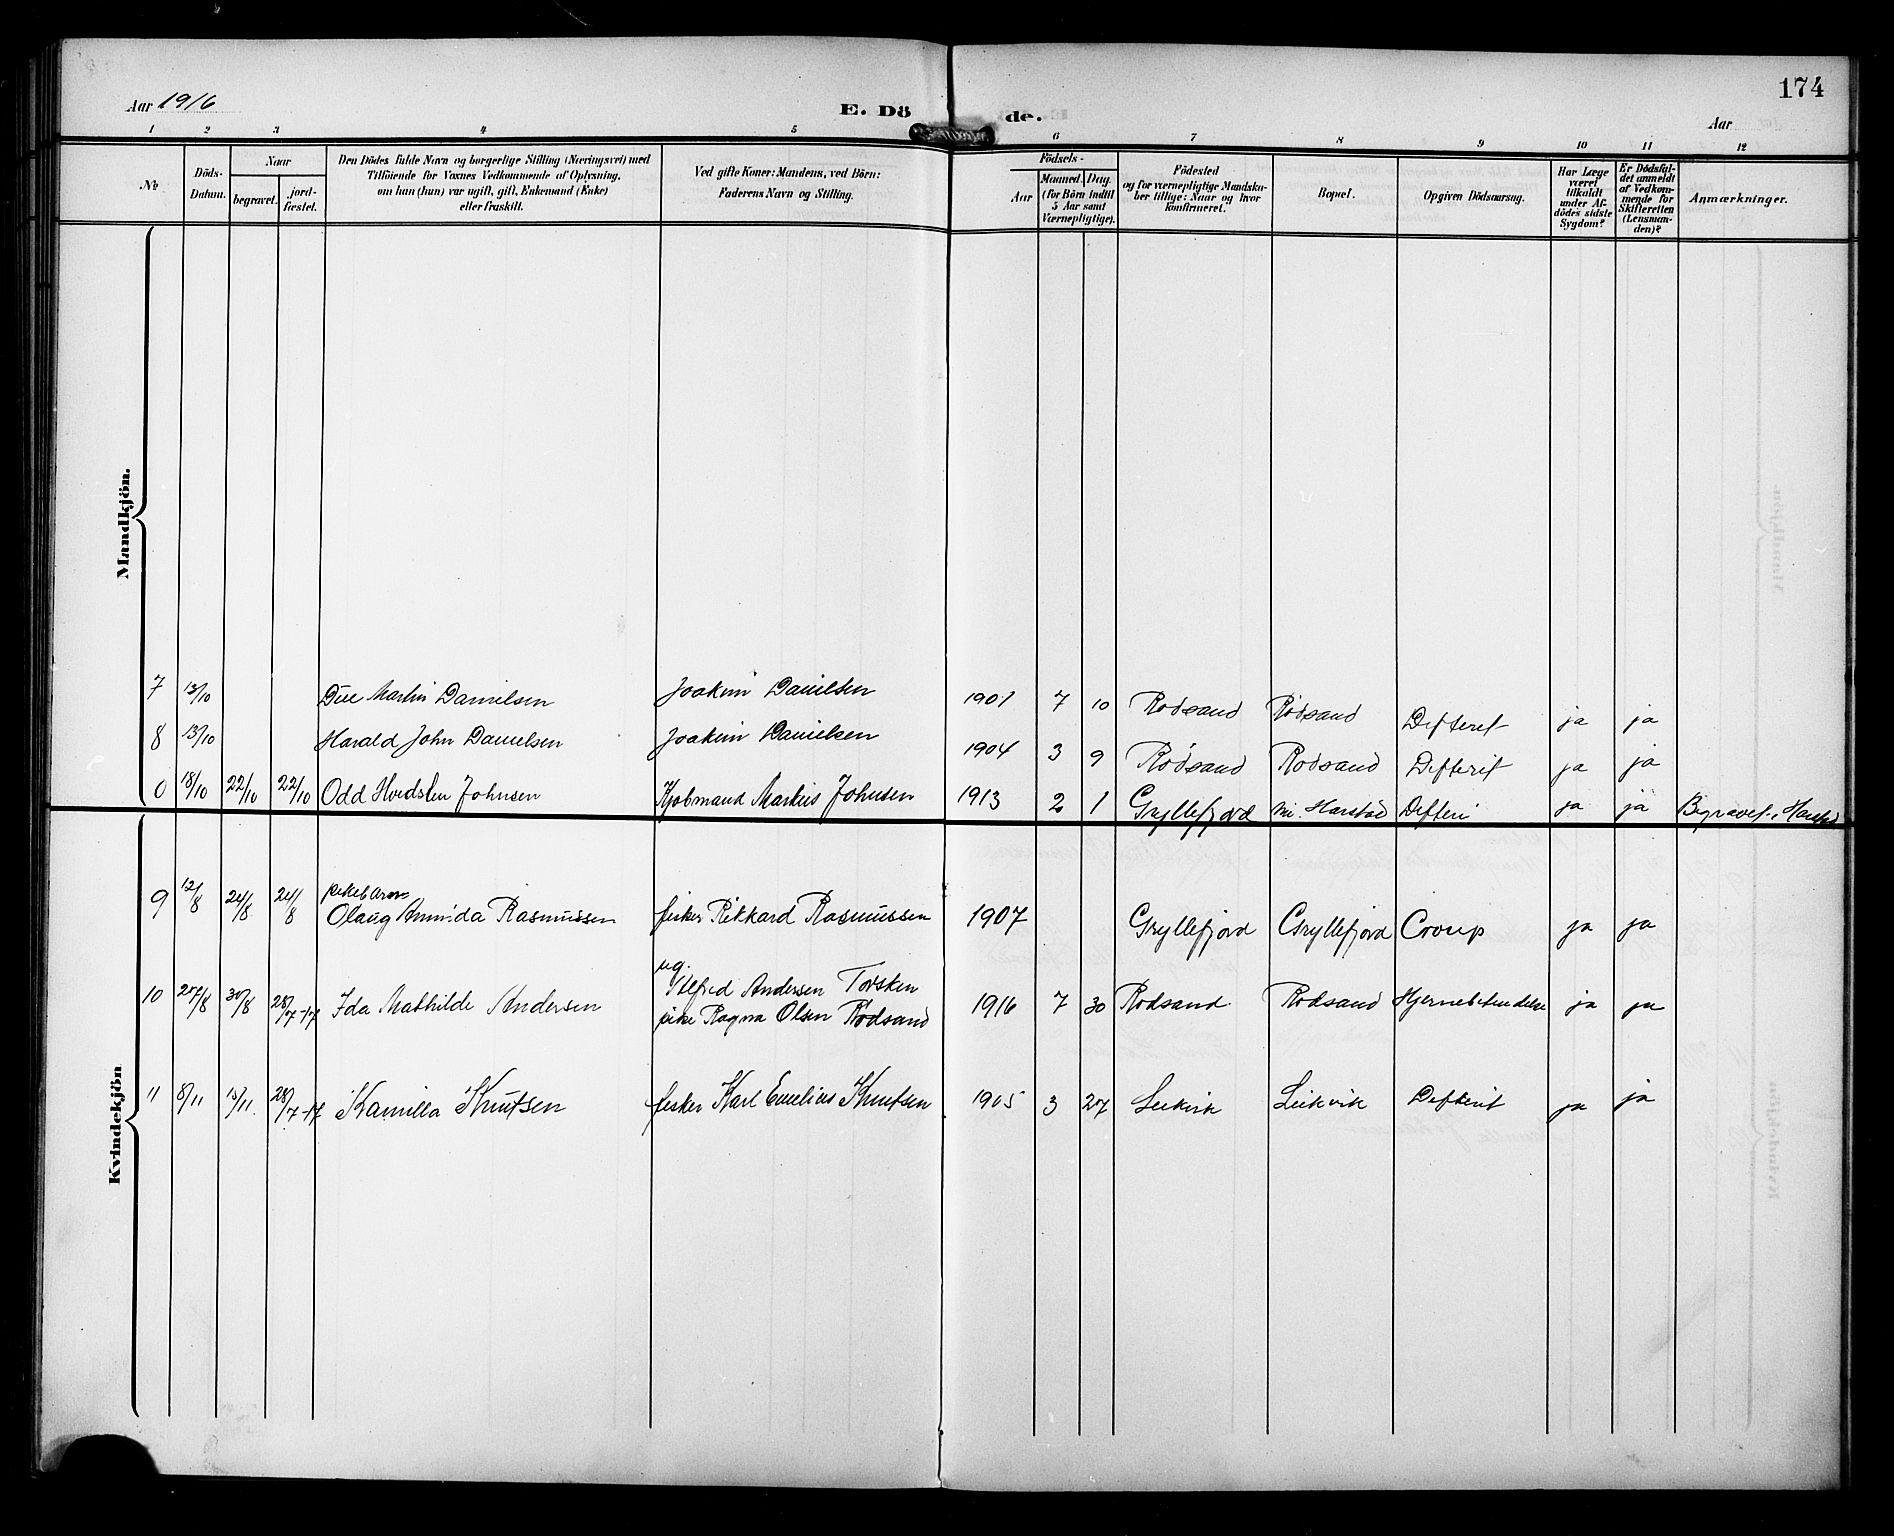 174
Aar 1916
E. Dö de.
Aar
1 2 3 4 5 6 7 8 9 10 11 12
No
Döds-
Datum.
Naar
begravet.
jord-
fæstet.
Den Dödes fulde Navn og borgerlige Stilling (Næringsvei) med
Tilföiende for Voxnes Vedkommende af Oplysning,
om han (hun) var ugift, gift, Enkemand (Enke)
eller fraskilt.
Ved gifte Koner: Mandens, ved Börn:
Faderens Navn og Stilling.
Födsels-
Aar
Maaned. Dag.
(for Börn indtil
5 Aar samt
Værnepligtige).
Födested
og for værnepligtige Mandska-
ber tillige: Naar og hvor
konfirmeret.
Bopæl.
Opgiven Dödsaarsag.
Har Læge
været
tilkaldt
under Af-
dödes sidste
Sygdom?
Er Dödsfal-
det anmeldt
af Vedkom-
mende for
Skifteretten
(Lensman-
den)?
Anmærkninger.
Mandkjön.
7 13/10 Martin Danielsen Joakim Danielsen 1901 7 10 Rödsand Rödsand Defterit ja ja
8 13/10 Harald John Danielsen Joakim Danielsen 1904 3 9 Rödsand Rodsand Defterit ja ja
0 18/10 22/10 22/10 Odd Hvidsten Johnsen Kjobmand Markus Johnsen 1913 2 1 Gryllefjord Harstad Defteri ja ja Begravet i Harstad
Kvindekjön
9 12/8 24/8 24/8 pikebarn
Olaug Aminda Rasmussen fisker Rikkard Rasmussen 1907 Gryllefjord Gryllefjord Croup ja ja
ug.
10 27/8 30/8 28/7-17 Ida Mathilde Andersen Alfred Andersen Torsken 1916 7 30 Rodsand Rodsand Hjernebetendelse ja ja
pike Ragna Olsen Rodsand
11 8/11 15/11. 28/7-17 Kamilla Knutsen fisker Karl Emelius Knutsen 1905 3 27 Leikvik Leikvik Defterit ja ja